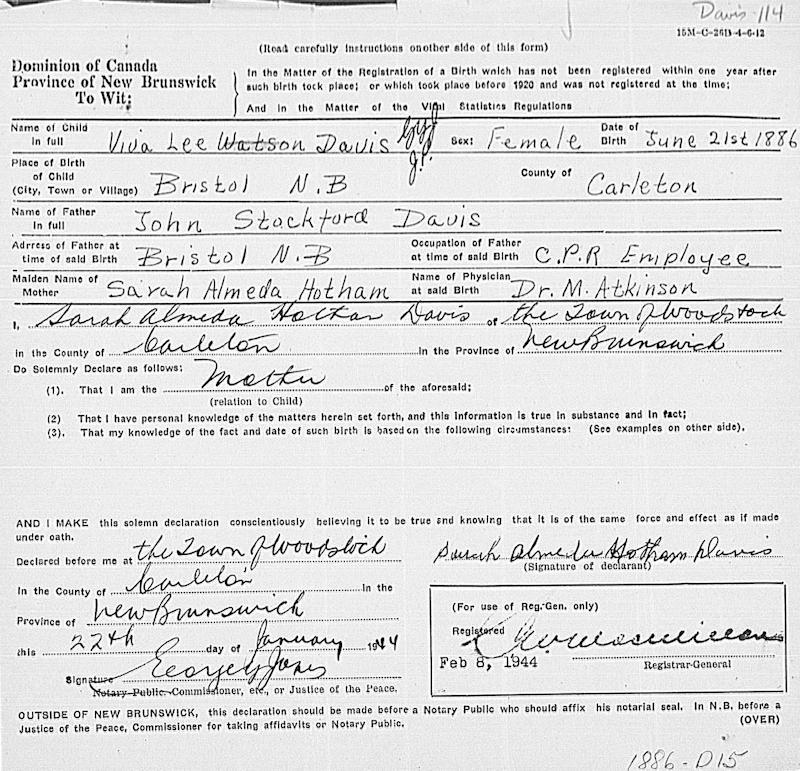 Davis 114
15M-C-26D-4-6-12
(Road carefully instructions on other side of this form)
Dominion of Canada
Province of New Brunswick
To Wit:
In the Matter of the Registration of a Birth which has not been registered within one year after
such birth took place; or which took place before 1920 and was not registered at the time;
And in the Matter of the Vital Statistics Regulations
Name of Child in full Viva Lee Watson Davis GYJ J.P. Sex: Female Date of Birth June 21st 1886
Place of Birth of Child (City, Town or Village) Bristol N.B County of Carleton
Name of Father in full John Stockford Davis
Address of Father at time of said Birth Bristol N.B Occupation of Father at time of said Birth C.P.R Employee
Maiden Name of Mother Sarah Almeda Hotham Name of Physician at said Birth Dr. M. Atkinson
I, Sarah Almeda Hotham Davis of the Town of Woodstock
in the County of Carleton in the Province of New Brunswick
Do Solemnly Declare as follows:
(1). That I am the Mother of the aforesaid;
(relation to Child)
(2) That I have personal knowledge of the matters herein set forth, and this information is true in substance and in fact;
(3). That my knowledge of the fact and date of such birth is based on the following circumstances: (See examples on other side).
AND I MAKE this solemn declaration conscientiously believing it to be true and knowing that it is of the same force and effect as if made
under oath.
Declared before me at the Town of Woodstock
In the County of Carleton in the
Province of New Brunswick
this 22th day of January 1944
Signature George Y Jones
Notary Public. Commissioner, etc., or Justice of the Peace.
Sarah Almeda Hotham Davis
(Signature of declarant)
(For use of Reg-Gen. only)
Registered
Feb 8, 1944
Registrar-General
OUTSIDE OF NEW BRUNSWICK, this declaration should be made before a Notary Public who should affix his notarial seal. In N.B. before a
Justice of the Peace, Commissioner for taking affidavits or Notary Public. (OVER)
1886-D15